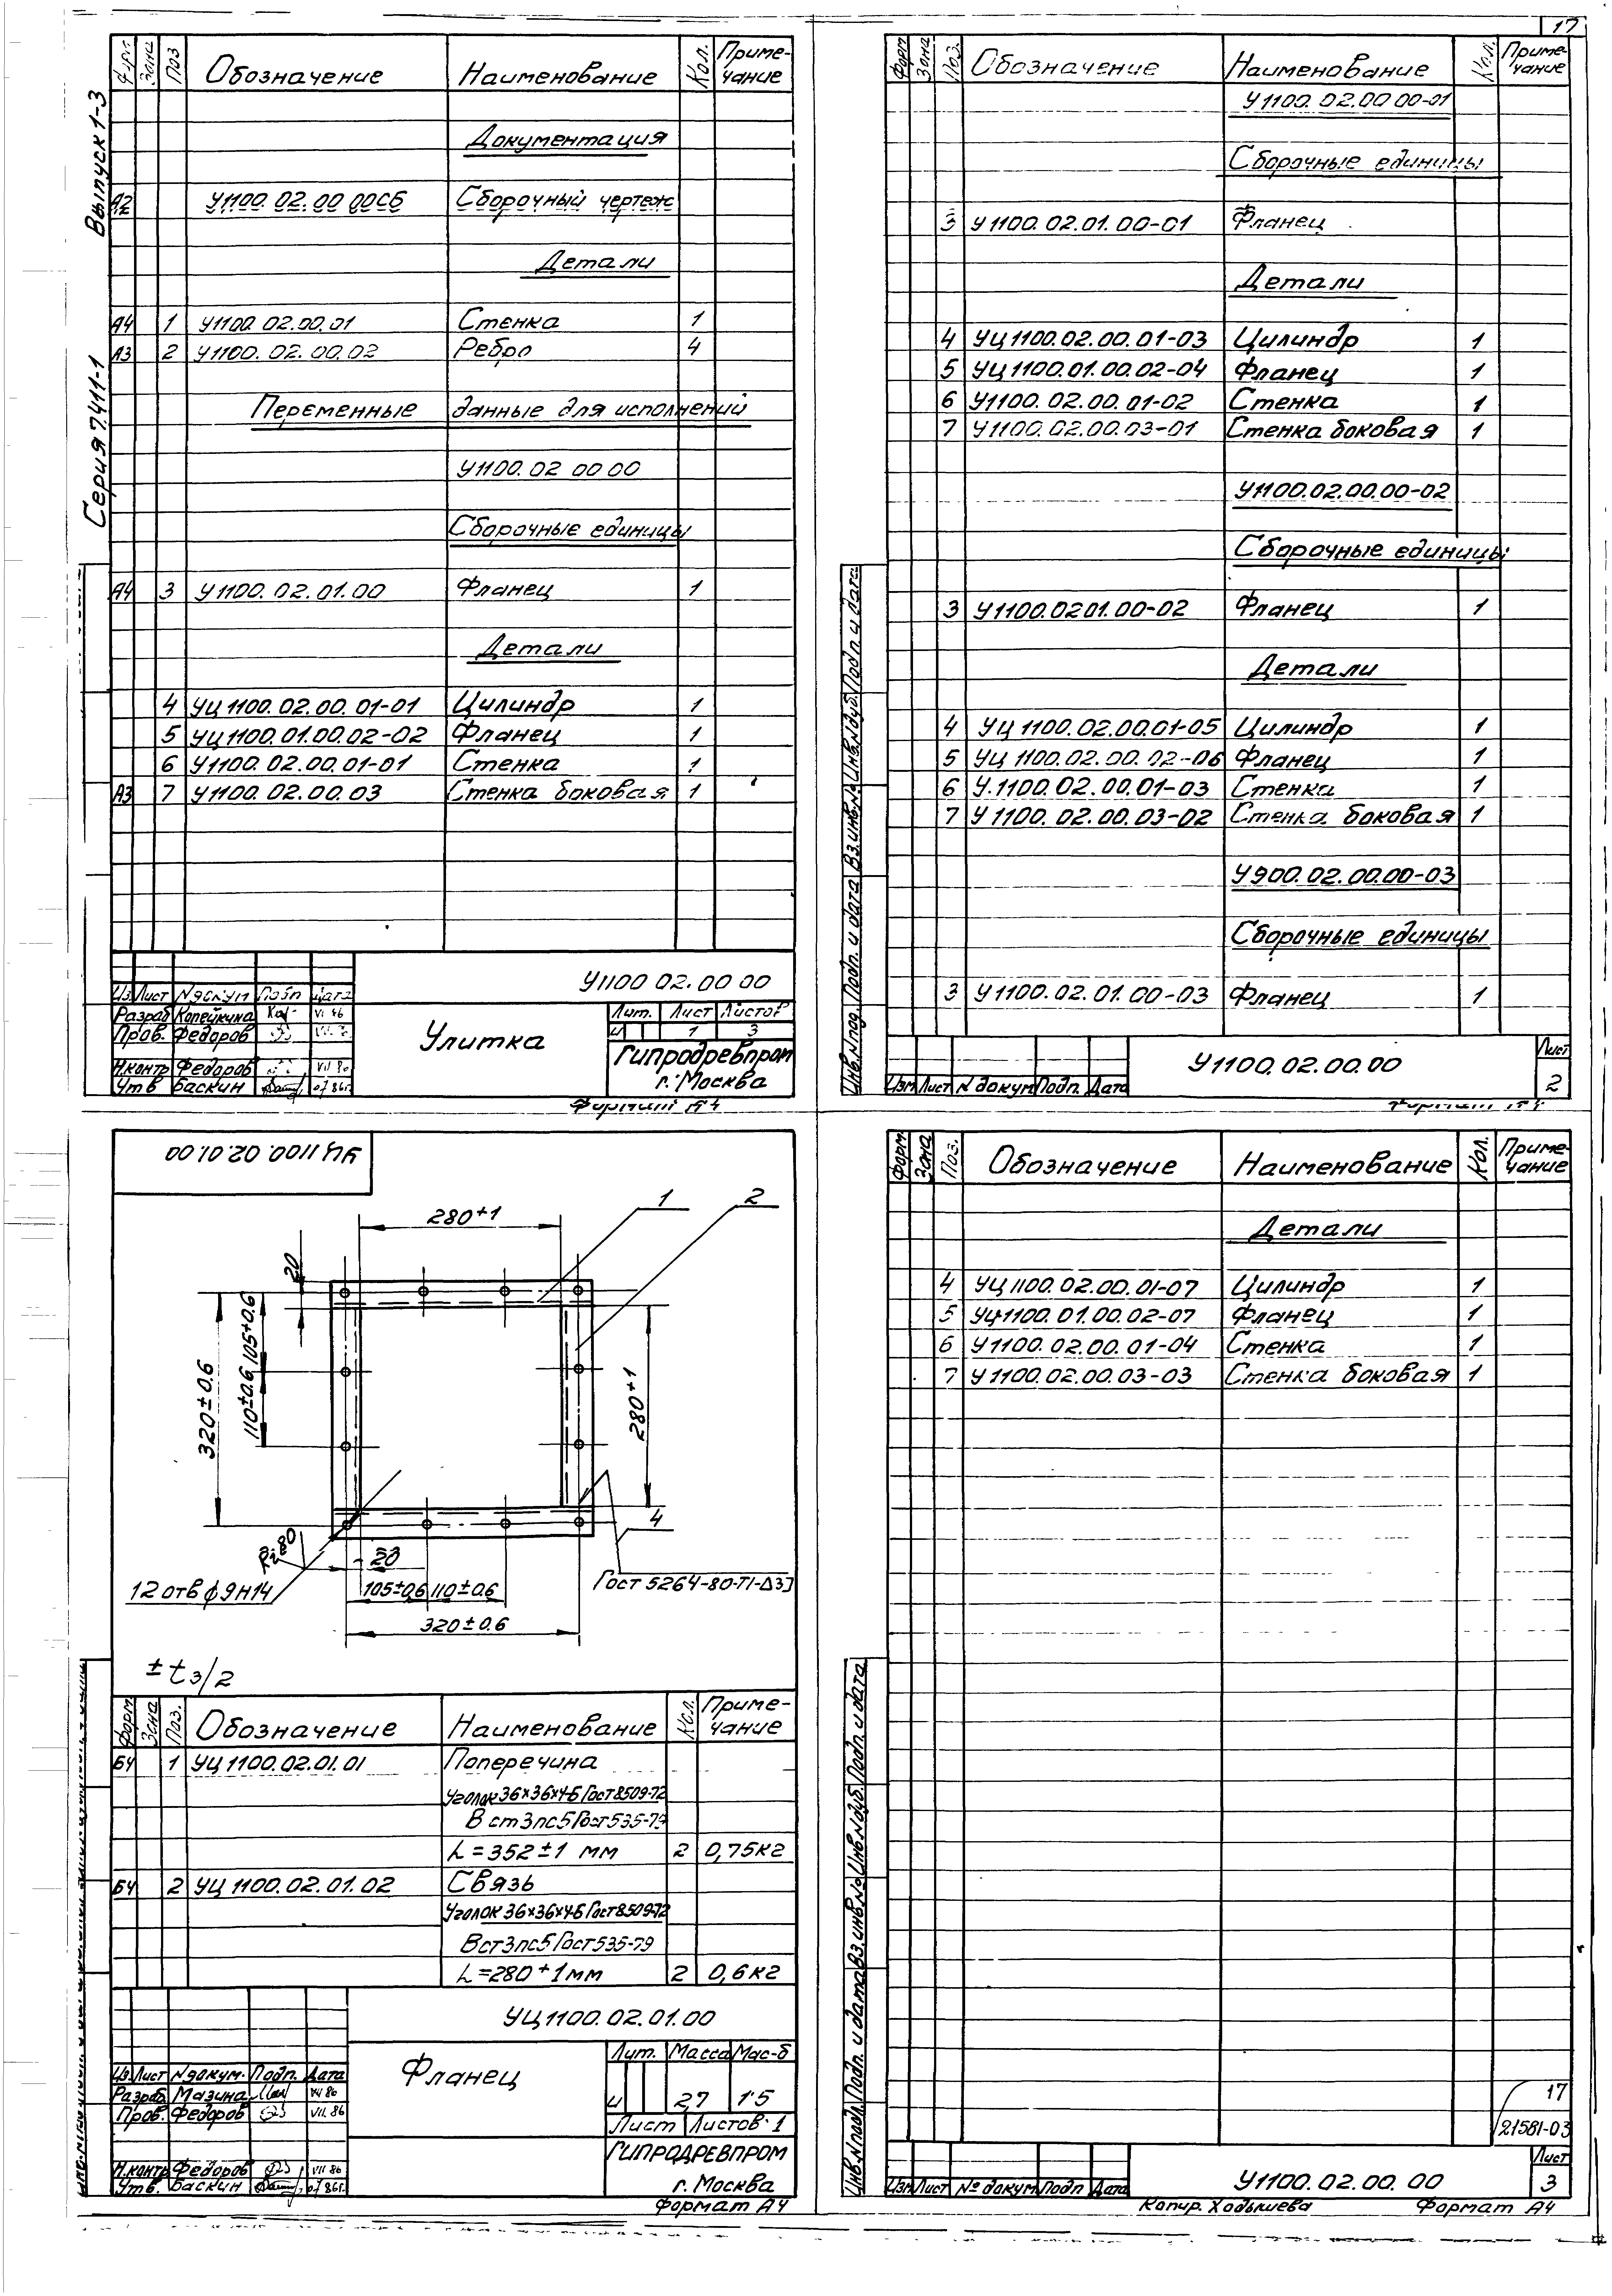 17
Выпуск 1-3
Серия 7.411-1
Зона Поз Обозначение Наименование Кол. Приме-чание
Документация
А2 У1100.02.00 00СБ Сборочный чертеж
Детали
А4 1 У1100.02.00.01 Стенка 1
А3 2 У1100.02.00.02 Ребро 4
Переменные данные для исполнений
У1100.02 00 00
Сборочные единицы
А4 3 У1100.02.01.00 Фланец 1
Детали
4 УЦ1100.02.00.01-01 Цилиндр 1
5 УЦ1100.01.00.02-02 Фланец 1
6 У1100.02.00.01-01 Стенка 1
А3 7 У1100.02.00.03 Стенка боковая 1
У1100 02.00 00
Из. Лист №докум Подп Дата
Разраб Копейкина VII 86
Пров. Федоров
Н.контр Федоров VII 86
Утв Баскин 07.86г.
Улитка
Лит. Лист Листов
И 1 3
Гипродревпром
г. Москва
Формат А4
Форм Зона Поз. Обозначение Наименование Кол. Приме-чание
У1100.02.00 00-01
Сборочные единицы
3 У1100.02.01.00-01 Фланец
Детали
4 УЦ1100.02.00.01-03 Цилиндр 1
5 УЦ1100.01.00.02-04 Фланец 1
6 У1100.02.00.01-02 Стенка 1
7 У1100.02.00.03-01 Стенка боковая 1
У1100.02.00.00-02
Сборочные единицы
3 У1100.0201.00-02 Фланец 1
Детали
4 УЦ 1100.02.00.01-05 Цилиндр 1
5 УЦ 1100.02.00.02-06 Фланец 1
6 У.1100.02.00.01-03 Стенка 1
7 У1100.02.00.03-02 Стенка боковая 1
У900.02.00.00-03
Сборочные единицы
3 У1100.02.01.00-03 Фланец 1
Инв.№под. Подп. и дата Вз.инв.№ Инв.№дуб. Подп. и дата
Изм Лист №докум Подп. Дата
У1100.02.00.00
Лист
2
Формат А4
УЦ 1100.02.01.00
280+1
1
2
20
105±0.6
110±0.6
320±0.6
280+1
4
Rz80
20
12 отв ϕ9Н14
105±0.6 110±0.6
320±0.6
Гост 5264-80-Т1-Δ3]
±t3/2
Форм Зона Поз. Обозначение Наименование Кол. Приме-чание
БЧ 1 УЦ1100.02.01.01 Поперечина
Уголок 36×36×4-Б Гост 8509-72
В ст3пс5 Гост 535-79
L=352±1 мм 2 0,75кг
БЧ 2 УЦ 1100.02.01.02 Связь
Уголок 36×36×4-Б Гост 8509-72
Вст3пс5 Гост 535-79
L=280+1мм 2 0,6кг
УЦ1100.02.01.00
Из. Лист №докум. Подп. Дата
Разраб. Мазина VII 86
Пров. Федоров VII.86
Н.контр Федоров VII 86
Утв. Баскин 07 86г.
Фланец
Лит. Масса Мас-б
И 2,7 1:5
Лист Листов 1
ГИПРОДРЕВПРОМ
г. Москва
Формат А4
Форм Зона Поз. Обозначение Наименование Кол. Приме-чание
Детали
4 УЦ1100.02.00.01-07 Цилиндр 1
5 УЦ1100.01.00.02-07 Фланец 1
6 У1100.02.00.01-04 Стенка 1
7 У1100.02.00.03-03 Стенка боковая 1
Инв.№подл. Подп. и дата Вз.инв.№ Инв.№дуб. Подп. и дата
17
21581-03
Изм Лист № докум Подп Дата
У1100.02.00.00
Лист
3
Копир. Ходышева Формат А4